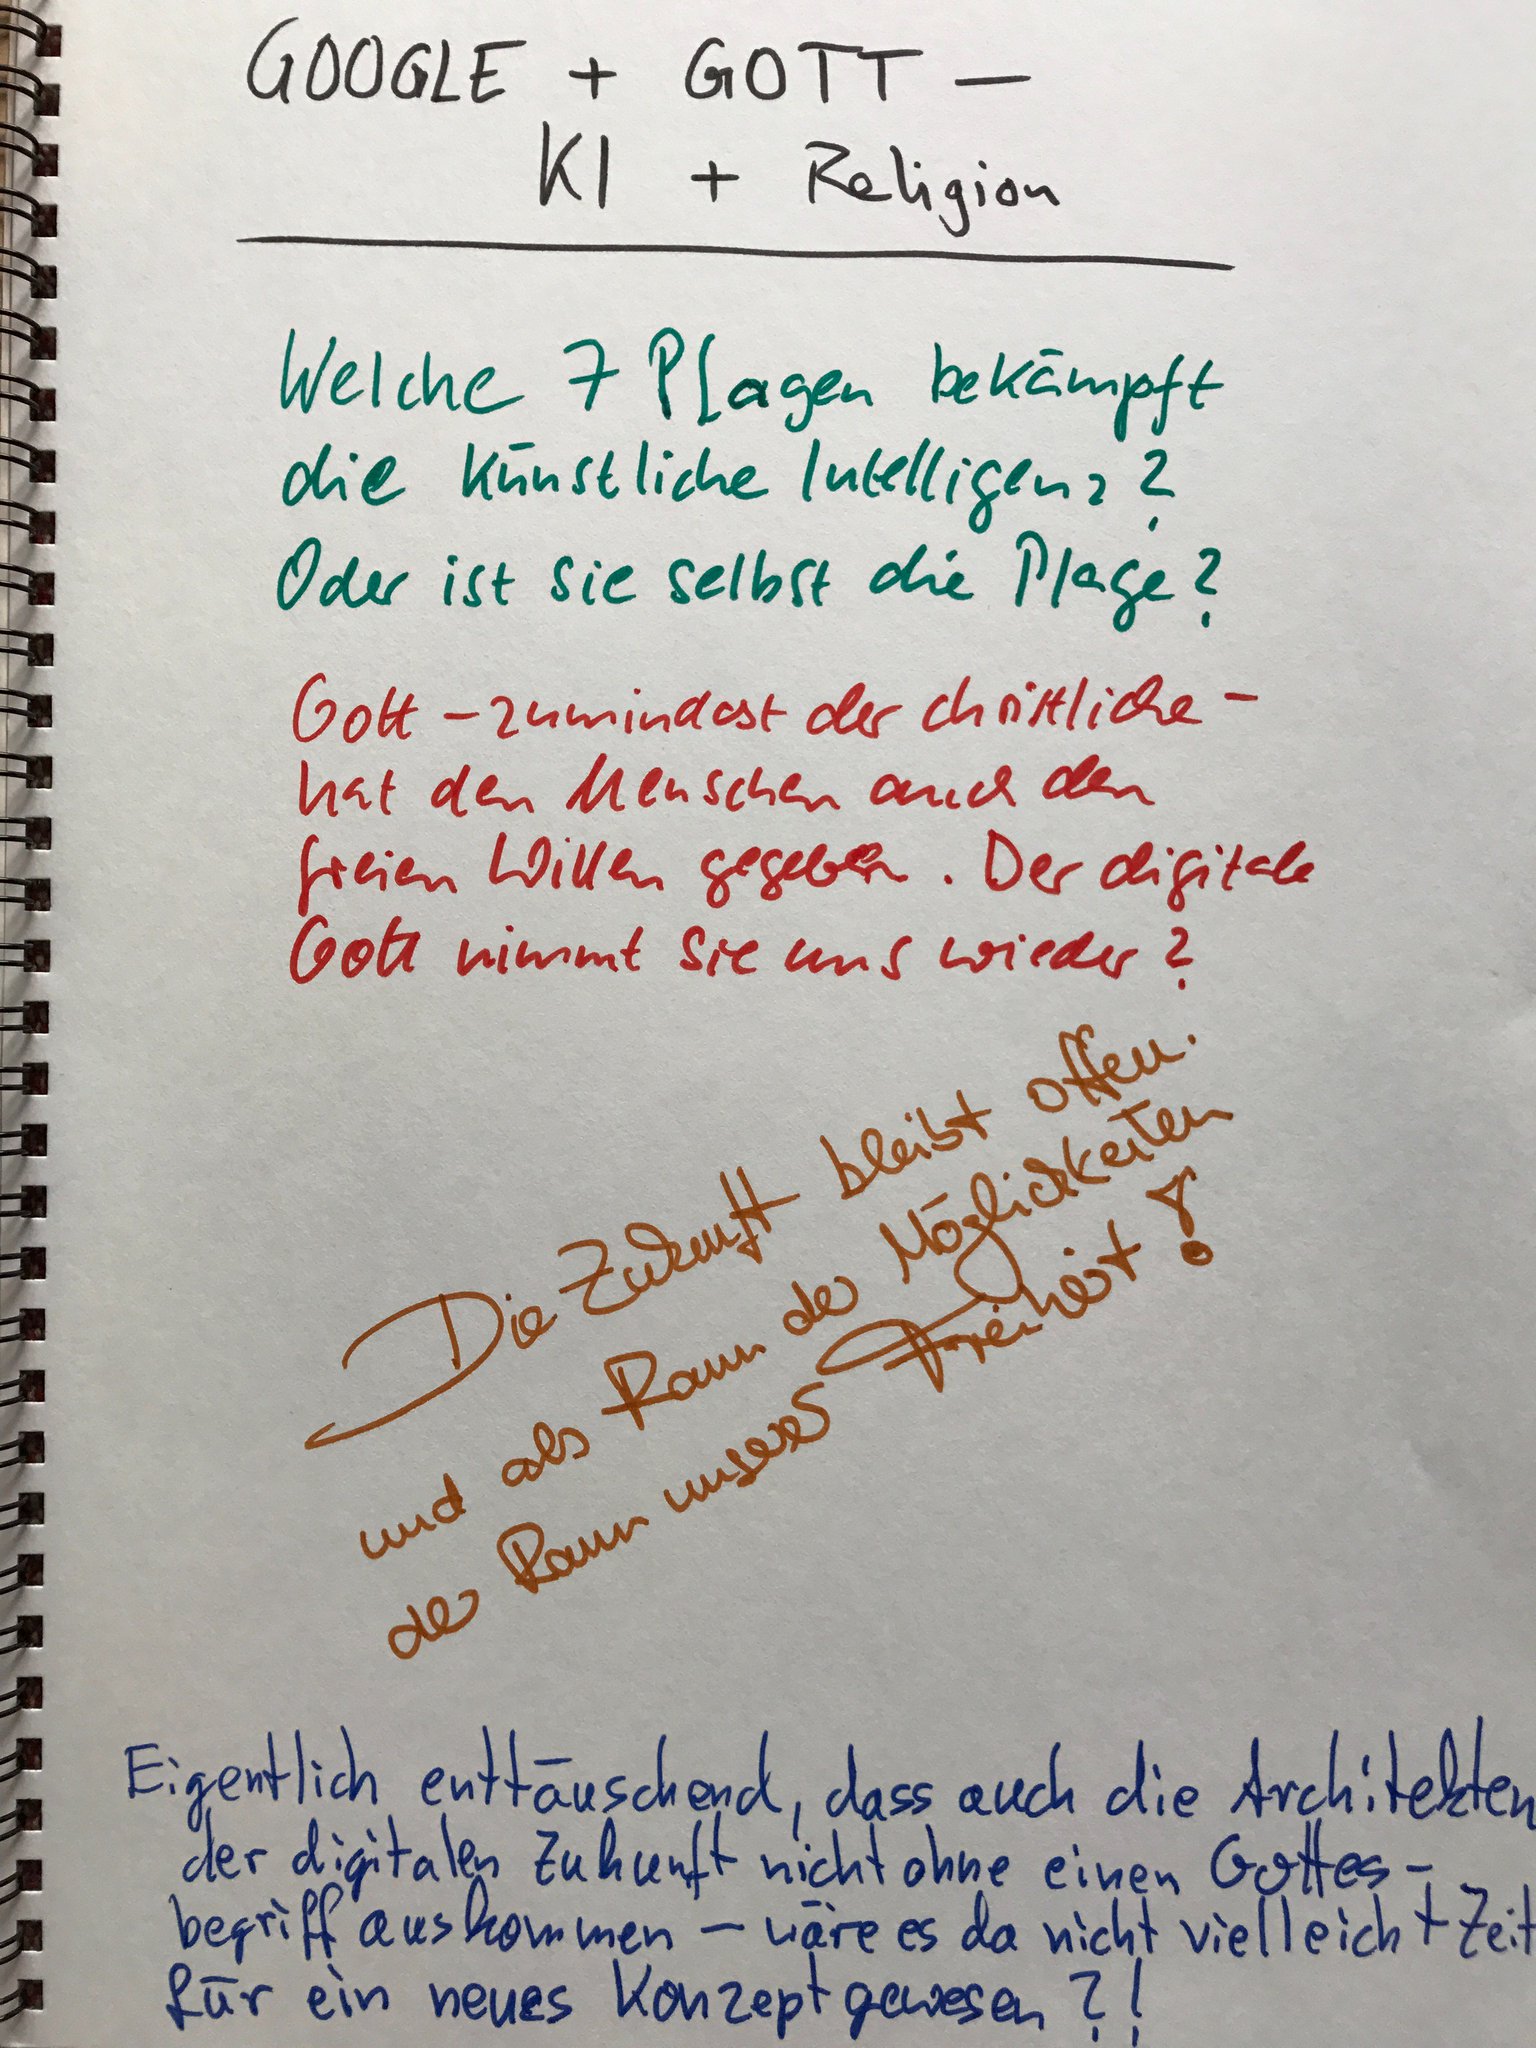 GOOGLE + GOTT –
KI + Religion
Welche 7 Plagen bekämpft
die künstliche Intelligenz?
Oder ist sie selbst die Plage?
Gott – zumindest der christliche –
hat den Menschen auch den
freien Willen gegeben. Der digitale
Gott nimmt sie uns wieder?
Die Zukunft bleibt offen.
und als Raum der Möglichkeiten
der Raum unserer Freiheit!
Eigentlich enttäuschend, dass auch die Architekten
der digitalen Zukunft nicht ohne einen Gottes-
begriff auskommen – wäre es da nicht vielleicht Zeit
für ein neues Konzept gewesen?!